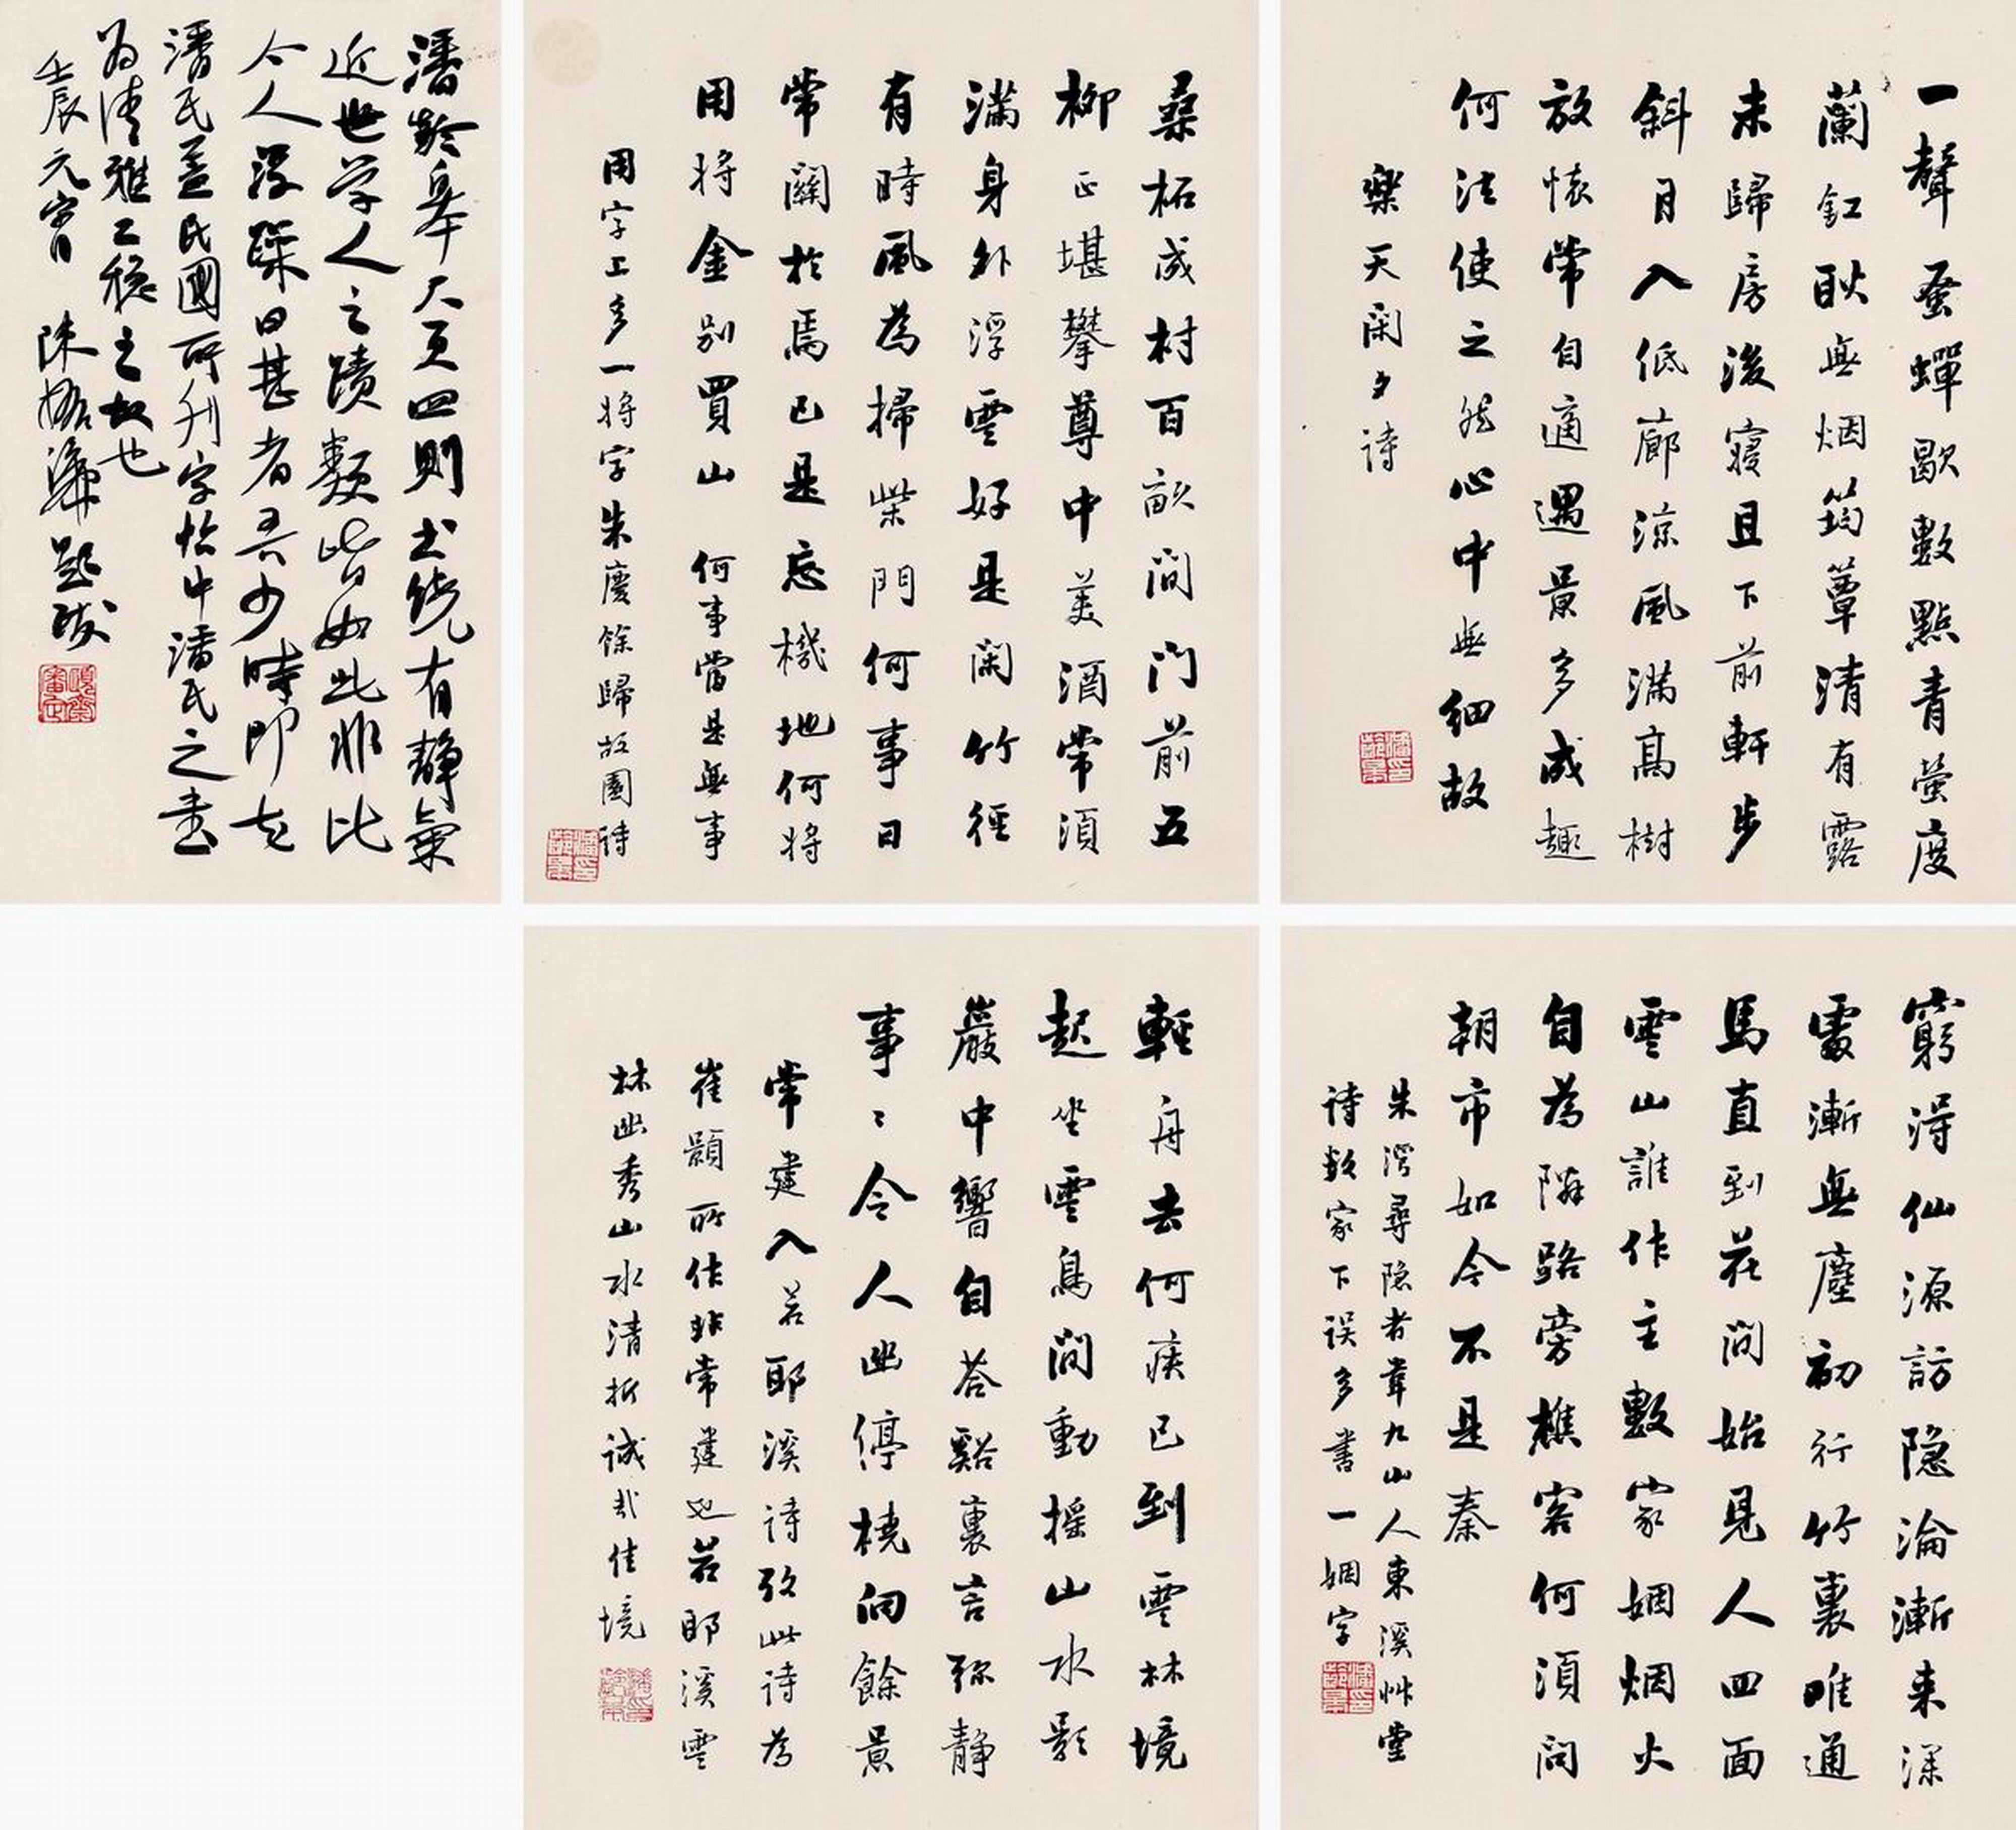 一聲蚤蟬歇數點青螢度
蘭釭耿無烟筠蕈清有露
未歸房後寢且下前軒步
斜月入低廊涼風滿高樹
放懷常自適遇景多成趣
何法使之然心中無細故
樂天閑夕诗
桑柘成村百畝間门前五
柳正堪攀尊中美酒常須
滿身外浮雲好是閑竹徑
有時風為掃柴門何事日
常關於焉已是忘機地何將
用將金別買山 何事當是無事
用字上多一將字朱慶餘歸故園诗
潘齡皋大頁四則书绕有靜氣
近世学人之蹟類皆如此非比
今人浮躁日甚者吾少時即知
潘氏盖民國所刊字帖中潘氏之書
为清雅工稳之故也
壬辰元宵 題跋
窮淂仙源訪隐淪漸来深
處漸無塵初行竹裏唯通
馬直到花間始見人四面
雲山誰作主數家烟火
自為隣路旁樵客何須问
朝市如今不是秦
朱灣尋隐者韋九山人東溪艸堂
诗數家下误多書一姻字
輕舟去何疾已到雲林境
起坐雲鳥間動摇山水影
巖中響自荅谿裏言弥静
事〻令人幽停橈向餘景
常建入若耶溪诗攷此诗為
崔顥所作非常建也若耶溪雲
林幽秀山水清折诚哉佳境